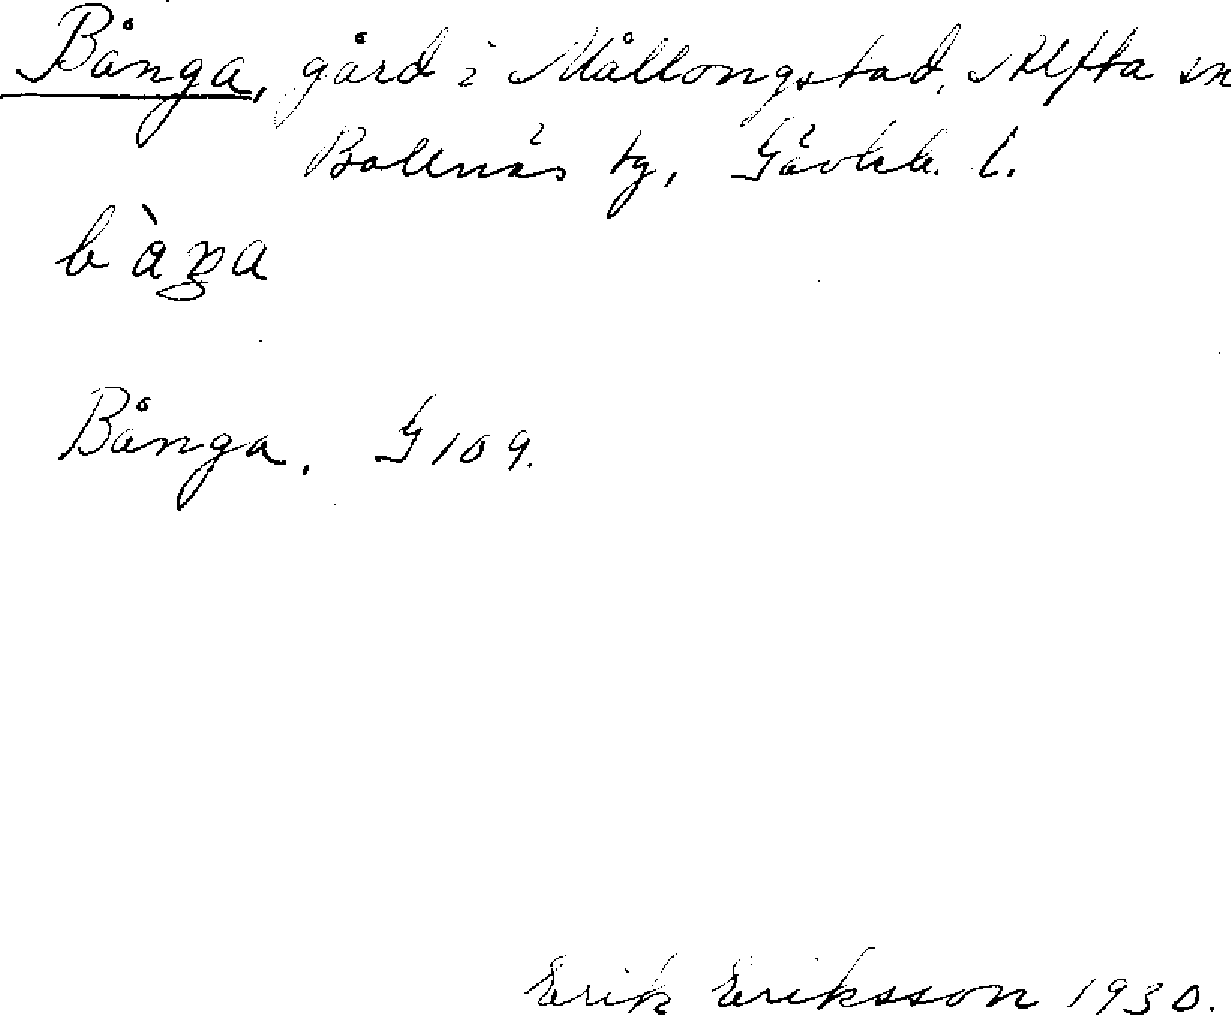 Bånga, gård i Mållongstad, Alfta sn
Bollnäs tg, Gävleb. l.
bàŋa
Bånga. G 109.
Erik Eriksson 1930.